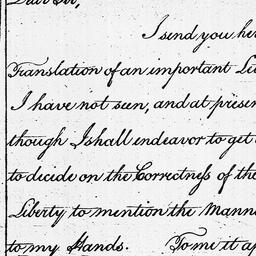 Dear Sir,
I send you her
Translation of an important Le
I have not seen, and at presen
though I shall endeavor to get
to decide on the Correctness of the
Liberty to mention the Mann
to my Hands. To me it ap